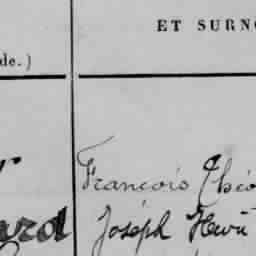 ET SURNO
de.)
r
François Théo
ard Joséph Henri